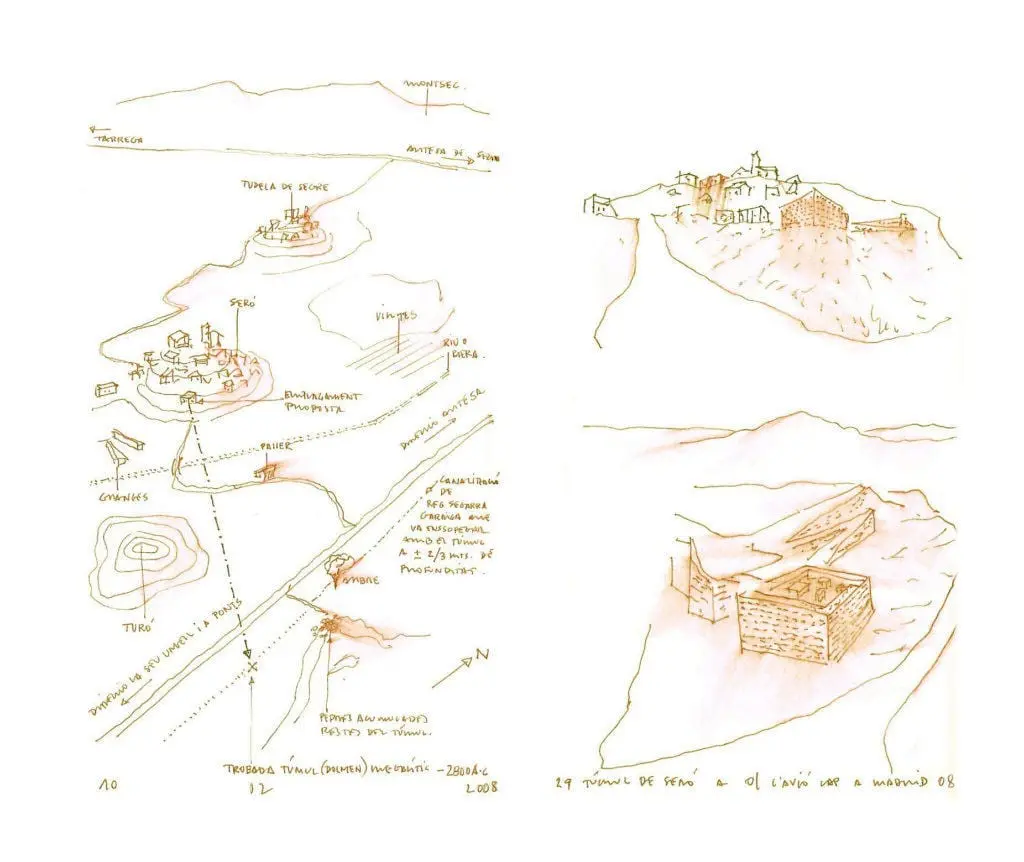 MONTSEC.
TARREGA
ARTESA DE SEGRE
TUDELA DE SEGRE
SERÓ
VINYES
RIU O
RIERA.
EMPLAÇAMENT
PROPOSTA
DIRECCIÓ ARTESA
PALLER
CANALITZACIÓ
DE
REG SEGARRA
GARRIGA QUE
VA ENSOPEGAR
AMB EL TÚMUL
A ± 2/3 MTS. DE
PROFUNDITAT.
GRANGES
ARBRE
TURÓ
DIRECCIÓ LA SEU URGELL I A PONTS
N
PEDRES ACUMULADES
RESTES DEL TÚMUL.
TROBADA TÚMUL (DOLMEN) MEGALÍTIC - 2800 A.C
10 12 2008
29 TÚMUL DE SERÓ A L'AVIÓ CAP A MADRID 08